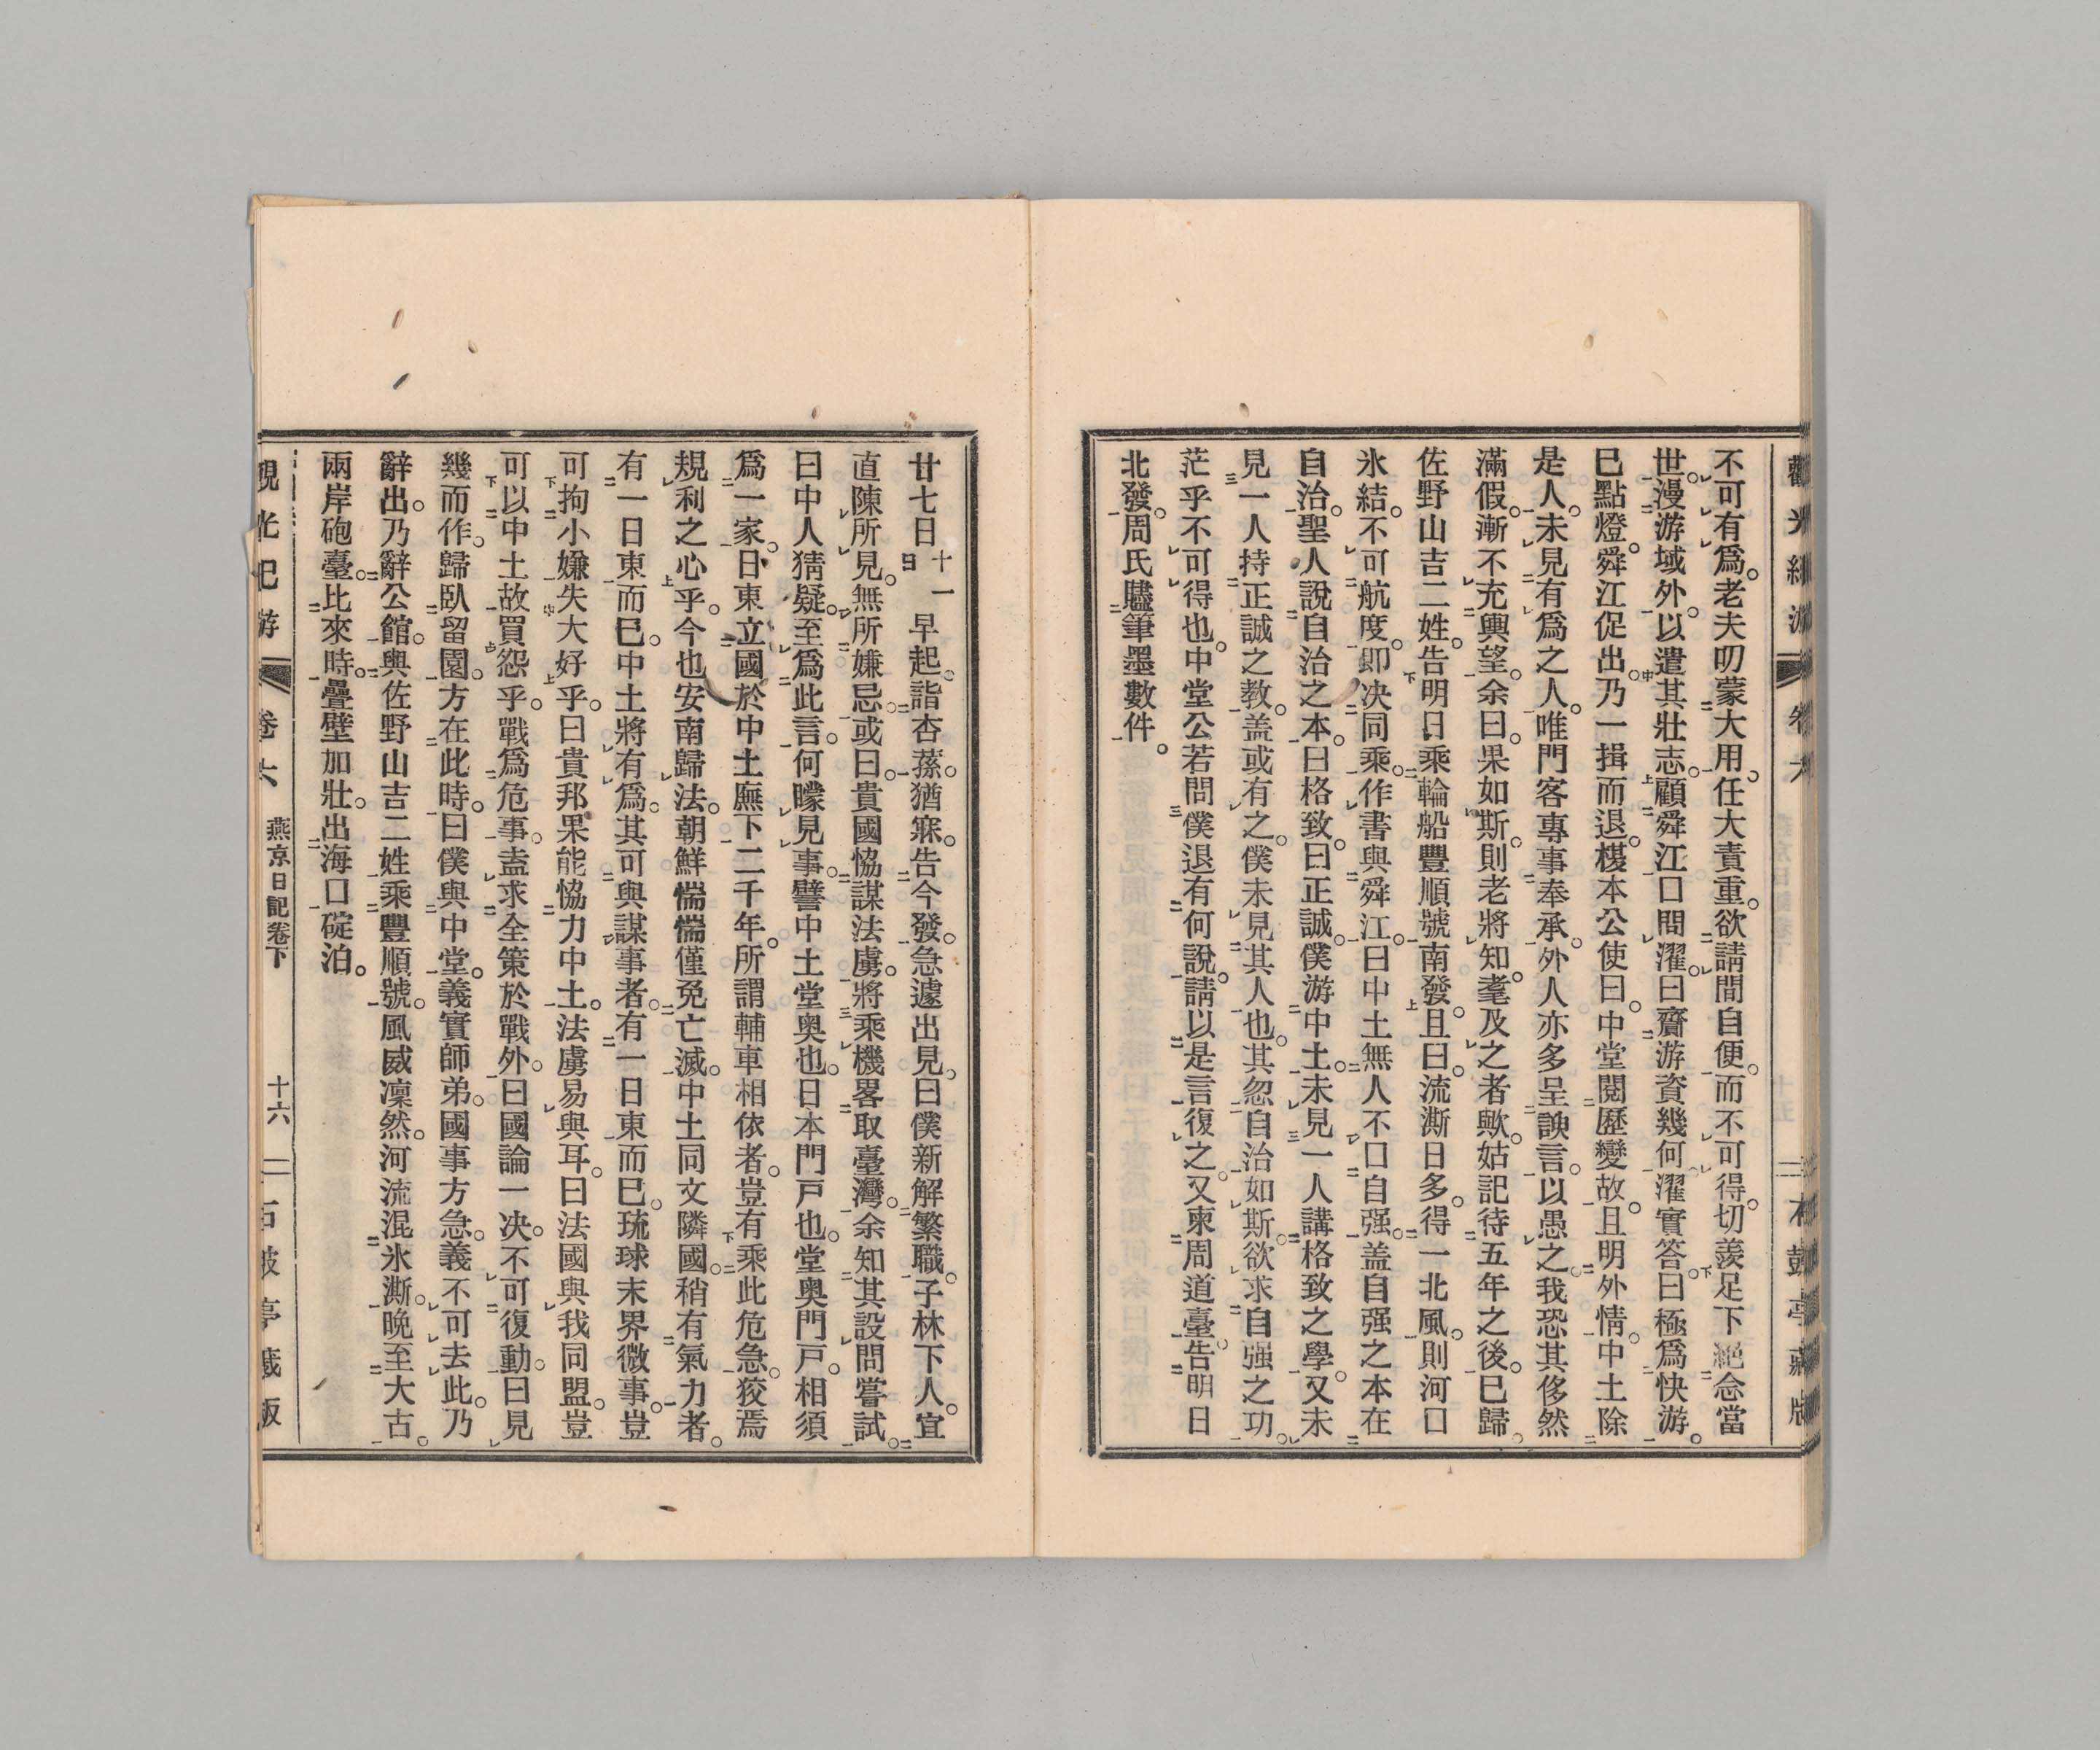 不可有爲。老夫叨蒙大用。任大責重。欲請間自便。而不可得。切羨足下絕念當
世。漫游域外。以遣其壯志。顧舜江口問濯。曰齎游資幾何。濯實答。曰極爲快游。
已點燈。舜江促出。乃一揖而退。榎本公使曰。中堂閱歷變故。且明外情。中土除
是人。未見有爲之人。唯門客專事奉承。外人亦多呈諛言。以愚之。我恐其侈然
滿假。漸不充輿望。余曰。果如斯。則老將知。耄及之者歟。姑記待五年之後。已歸。
佐野山吉二姓。告明日乘輪船豐順號南發。且曰。流澌日多。得一北風。則河口
氷結。不可航度。即決同乘。作書與舜江。曰中土無人不口自强。盖自强之本在
自治。聖人說自治之本。曰格致。曰正誠。僕游中土。未見一人講格致之學。又未
見一人持正誠之教。盖或有之。僕未見其人也。其忽自治如斯。欲求自强之功。
茫乎不可得也。中堂公若問僕退有何說。請以是言復之。又柬周道臺。告明日
北發。周氏贐筆墨數件。
觀光紀游 卷六
廿七日 十一日 早起。詣杏蓀。猶寐。告今發。急遽出見。曰僕新解繁職。子林下人。宜
直陳所見。無所嫌忌。或曰。貴國恊謀法虜。將乘機畧取臺灣。余知其設問嘗試。
曰中人猜疑。至爲此言。何矇見事。譬中土堂奥也。日本門戸也。堂奥門戸。相須
爲一家。日東立國於中土廡下二千年。所謂輔車相依者。豈有乘此危急。狡焉
規利之心乎。今也安南歸法。朝鮮惴惴僅免亡滅。中土同文隣國。稍有氣力者。
有一日東而已。中土將有爲。其可與謀事者。有一日東而已。琉球末界微事。豈
可拘小嫌失大好乎。曰貴邦果能恊力中土。法虜易與耳。曰法國與我同盟。豈
可以中土故買怨乎。戰爲危事。盍求全策於戰外。曰國論一決。不可復動。曰見
幾而作。歸臥留園。方在此時。曰僕與中堂。義實師弟。國事方急。義不可去此。乃
辭出。乃辭公館。與佐野山吉二姓乘豐順號。風威凜然。河流混氷澌。晩至大古。
兩岸砲臺。比來時。疊壁加壯。出海口碇泊。
觀光紀游 卷六 燕京日記卷下 十六 石鼓亭藏版